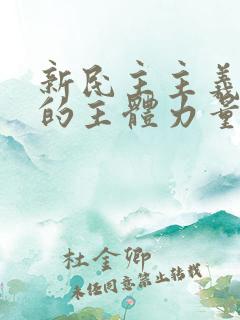 新民主主義
的主體力量
杜金卿
未經同意禁止轉載